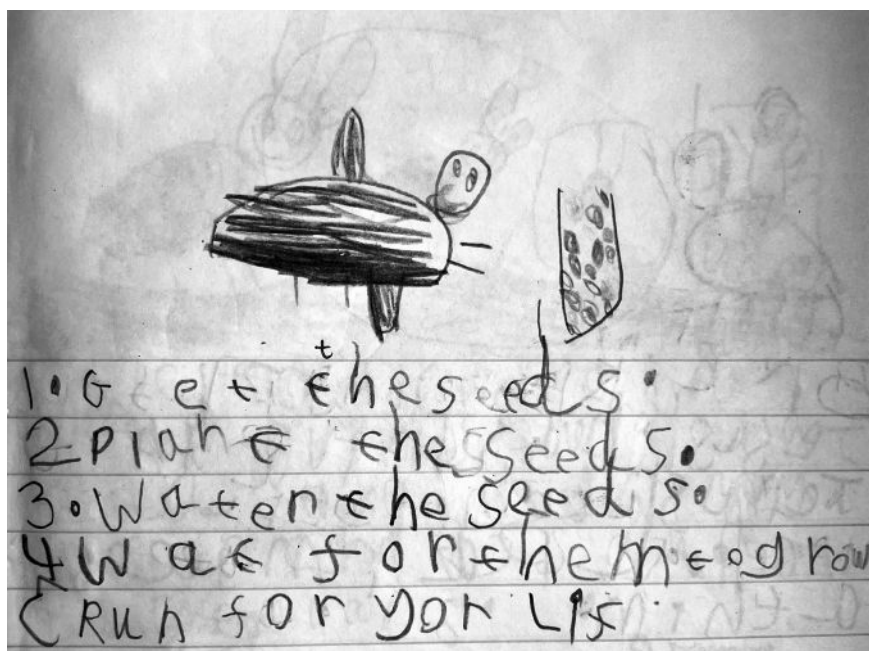 1. Get the seeds.
2 Plant the seeds.
3. Water the seeds.
4 Wat for them to grow
5 Run for yor Lif